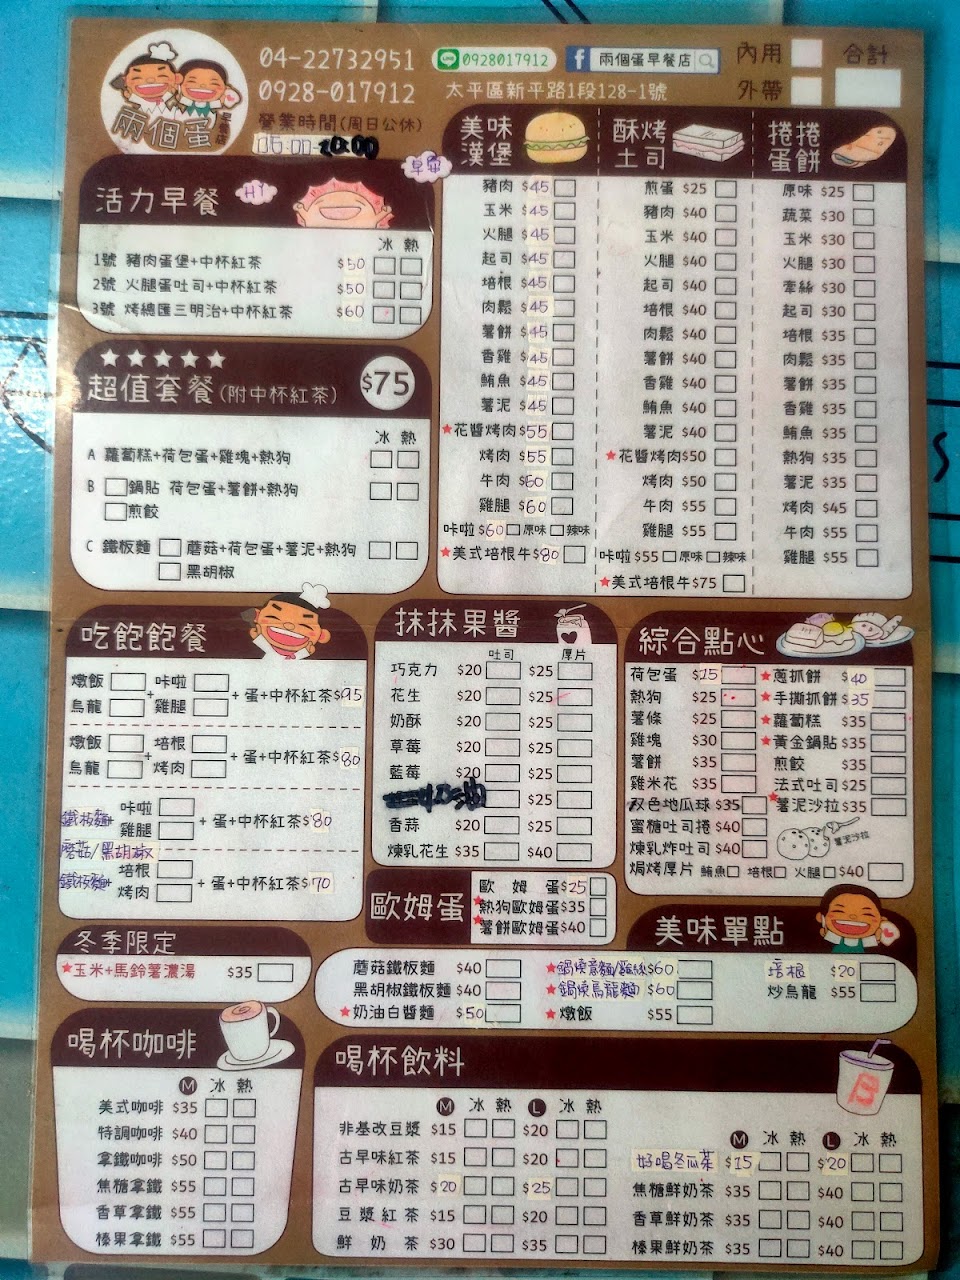 兩個蛋
早餐店
04-22732951
0928-017912
LINE 0928017912
f 兩個蛋早餐店
太平區新平路1段128-1號
營業時間(周日公休)
內用
外帶
合計
活力早餐
早安
冰 熱
1號 豬肉蛋堡+中杯紅茶 $50
2號 火腿蛋吐司+中杯紅茶 $50
3號 烤總匯三明治+中杯紅茶 $60
超值套餐(附中杯紅茶) $75
冰 熱
A 蘿蔔糕+荷包蛋+雞塊+熱狗
B 鍋貼 荷包蛋+薯餅+熱狗
煎餃
C 鐵板麵 蘑菇+荷包蛋+薯泥+熱狗
黑胡椒
美味漢堡
豬肉 $45
玉米 $45
火腿 $45
起司 $45
培根 $45
肉鬆 $45
薯餅 $45
香雞 $45
鮪魚 $45
薯泥 $45
★花醬烤肉 $55
烤肉 $55
牛肉 $60
雞腿 $60
咔啦 $60 原味 辣味
★美式培根牛 $80
酥烤土司
煎蛋 $25
豬肉 $40
玉米 $40
火腿 $40
起司 $40
培根 $40
肉鬆 $40
薯餅 $40
香雞 $40
鮪魚 $40
薯泥 $40
★花醬烤肉 $50
烤肉 $50
牛肉 $55
雞腿 $55
咔啦 $55 原味 辣味
★美式培根牛 $75
捲捲蛋餅
原味 $25
蔬菜 $30
玉米 $30
火腿 $30
牽絲 $30
起司 $30
培根 $35
肉鬆 $35
薯餅 $35
香雞 $35
鮪魚 $35
熱狗 $35
薯泥 $35
烤肉 $45
牛肉 $55
雞腿 $55
吃飽飽餐
燉飯 咔啦
烏龍 + 雞腿 + 蛋+中杯紅茶 $95
燉飯 培根
烏龍 + 烤肉 + 蛋+中杯紅茶 $80
鐵板麵+ 咔啦
雞腿 + 蛋+中杯紅茶 $80
蘑菇/黑胡椒
鐵板麵+ 培根
烤肉 + 蛋+中杯紅茶 $70
抹抹果醬
吐司 厚片
巧克力 $20 $25
花生 $20 $25
奶酥 $20 $25
草莓 $20 $25
藍莓 $20 $25
$25
香蒜 $20 $25
煉乳花生 $35 $40
綜合點心
荷包蛋 $15
熱狗 $25
薯條 $25
雞塊 $30
薯餅 $35
雞米花 $35
双色地瓜球 $35
蜜糖吐司捲 $40
煉乳炸吐司 $40
焗烤厚片 鮪魚 培根 火腿 $40
★蔥抓餅 $40
★手撕抓餅 $35
★蘿蔔糕 $35
★黃金鍋貼 $35
煎餃 $35
法式吐司 $25
★薯泥沙拉 $35
薯泥沙拉
歐姆蛋
歐姆蛋 $25
★熱狗歐姆蛋 $35
★薯餅歐姆蛋 $40
冬季限定
★玉米+馬鈴薯濃湯 $35
美味單點
蘑菇鐵板麵 $40
黑胡椒鐵板麵 $40
★奶油白醬麵 $50
★鍋燒烏龍麵 $60
★燉飯 $55
培根 $20
炒烏龍 $55
喝杯咖啡
M 冰 熱
美式咖啡 $35
特調咖啡 $40
拿鐵咖啡 $50
焦糖拿鐵 $55
香草拿鐵 $55
榛果拿鐵 $55
喝杯飲料
M 冰 熱 L 冰 熱
非基改豆漿 $15 $20
古早味紅茶 $15 $20
古早味奶茶 $20 $25
豆漿紅茶 $15 $20
鮮奶茶 $30 $35
M 冰 熱 L 冰 熱
好喝冬瓜茶 $15 $20
焦糖鮮奶茶 $35 $40
香草鮮奶茶 $35 $40
榛果鮮奶茶 $35 $40